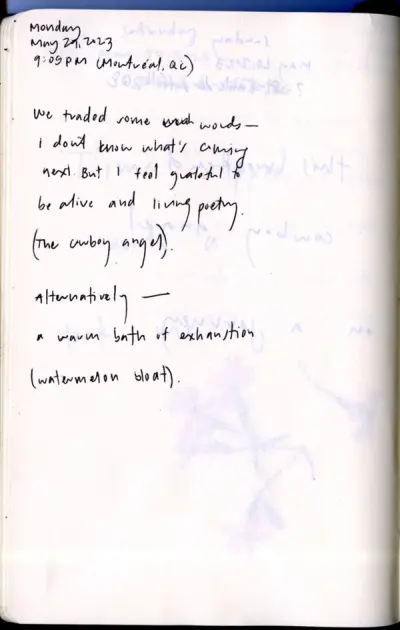 Monday
May 29, 2023
9:09 PM (Montréal, QC)
We traded some words —
I don't know what's coming
next. But I feel grateful to
be alive and living poetry.
(The cowboy angel).
Alternatively —
a warm bath of exhaustion
(watermelon bloat).